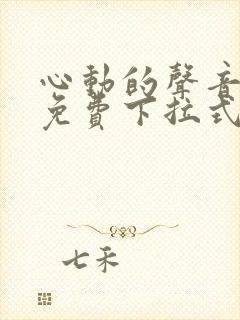 心動的聲音
免費下拉式
七禾